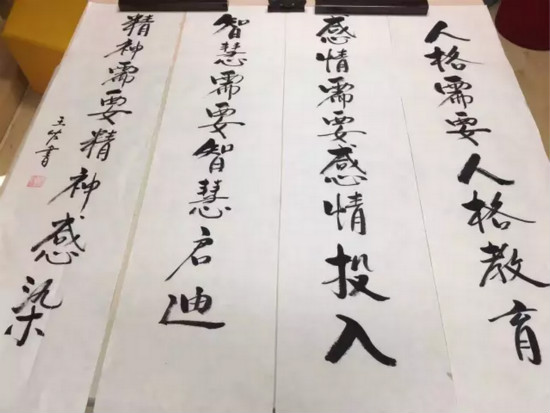 人格需要人格教育
感情需要感情投入
智慧需要智慧启迪
精神需要精神感染